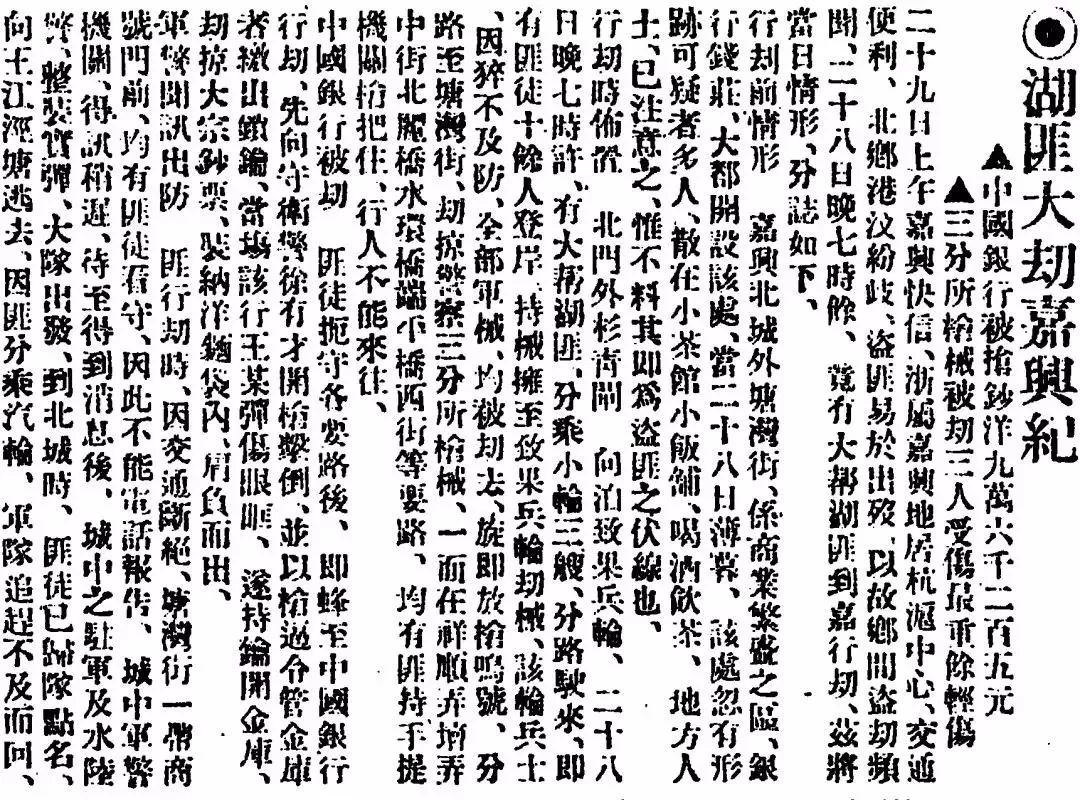 ◉湖匪大刧嘉興紀
▲中國銀行被搶鈔洋九萬六千二百五元
▲三分所槍械被刧三人受傷最重餘輕傷
二十九日上午嘉興快信、浙屬嘉興地居杭滬中心、交通
便利、北鄉港汊紛歧、盜匪易於出歿、以故鄉間盜刧頻
聞、二十八日晚七時餘、竟有大幫湖匪到嘉行刧、茲將
當日情形、分誌如下、
行刧前情形　嘉興北城外塘灣街、係商業繁盛之區、銀
行錢莊、大都開設該處、當二十八日薄暮、該處忽有形
跡可疑者多人、散在小茶館小飯舖、喝酒飲茶、地方人
士、已注意之、惟不料其即爲盜匪之伏線也、
行刧時佈置　北門外杉青閘　向泊致果兵輪、二十八
日晚七時許、有大幫湖匪、分乘小輪三艘、分路駛來、即
有匪徒十餘人登岸、持械擁至致果兵輪刧械、該輪兵士
、因猝不及防、全部軍械、均被刧去、旋即放槍鳴號、分
路至塘灣街、刧掠警察三分所槍械、一面在祥順弄堉弄
中街北麗橋水環橋端平橋西街等要路、均有匪持手提
機關槍把住、行人不能來往、
中國銀行被刧　匪徒扼守各要路後、即蜂至中國銀行
行刧、先向守衛警徐有才開槍擊倒、並以槍逼令管金庫
者繳出鎖鑰、當塲該行王某彈傷眼眶、遂持鑰開金庫、
刧掠大宗鈔票、裝納洋麵袋內、肩負而出、
軍警聞訊出防　匪行刧時、因交通斷絕、塘灣街一帶商
號門前、均有匪徒看守、因此不能電話報告、城中軍警
機關、得訊稍遲、待至得到消息後、城中之駐軍及水陸
警、整裝實彈、大隊出發、到北城時、匪徒已歸隊點名、
向王江涇塘逃去、因匪分乘汽輪、軍隊追趕不及而回、